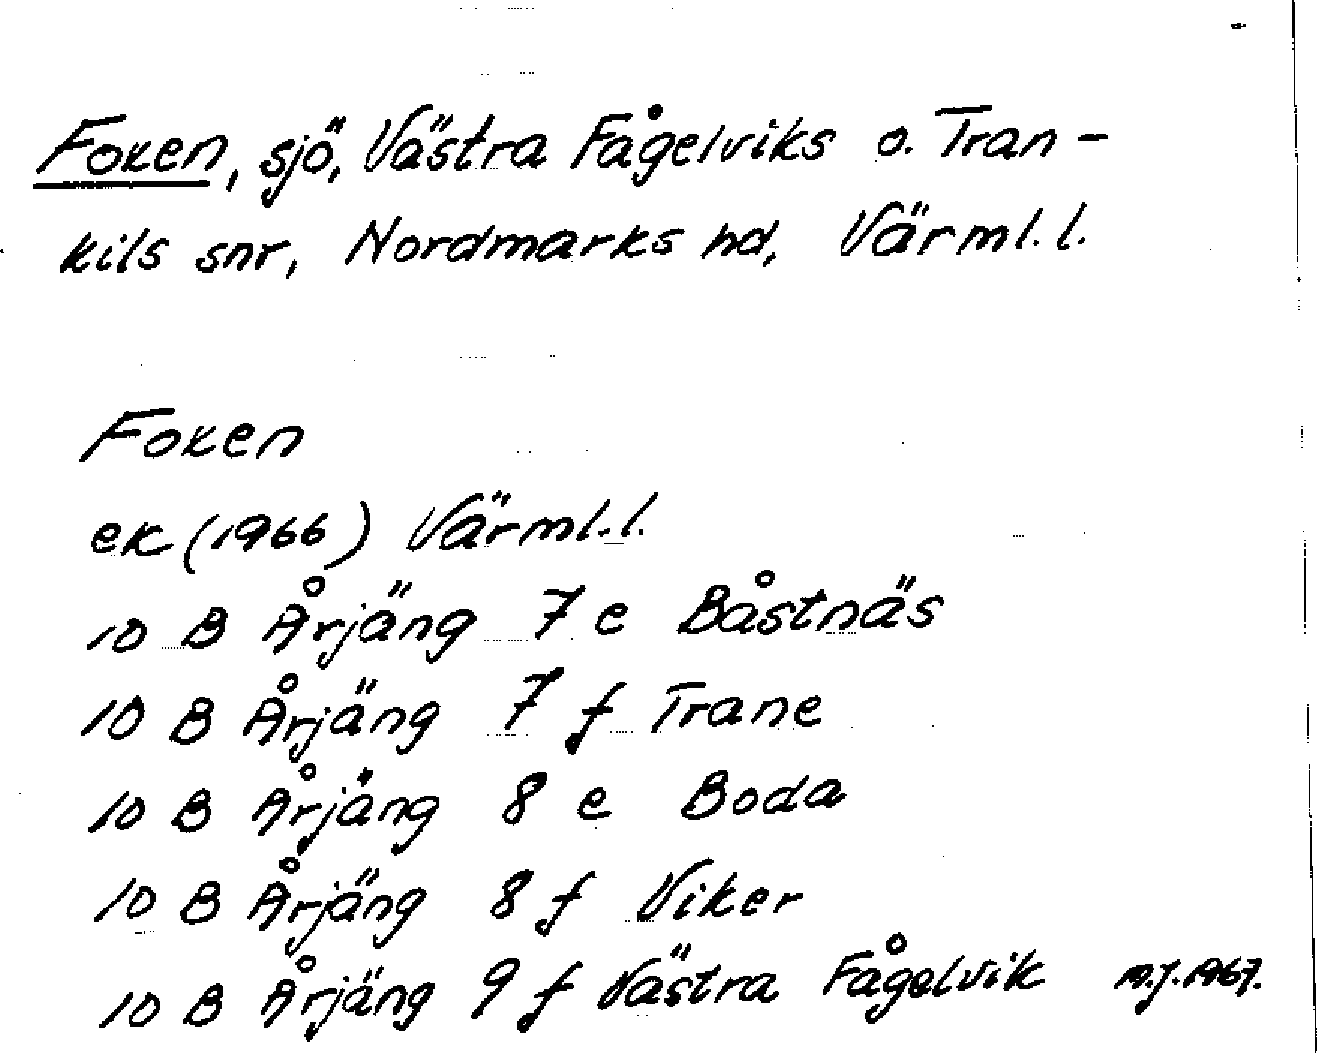 Foxen, sjö, Västra Fågelviks o. Tran-
kils snr, Nordmarks hd, Värml. l.
Foxen
ek (1966) Värml. l.
10 B Årjäng 7 e Båstnäs
10 B Årjäng 7 f Trane
10 B Årjäng 8 e Boda
10 B Årjäng 8 f Viker
10 B Årjäng 9 f Västra Fågelvik 1967.